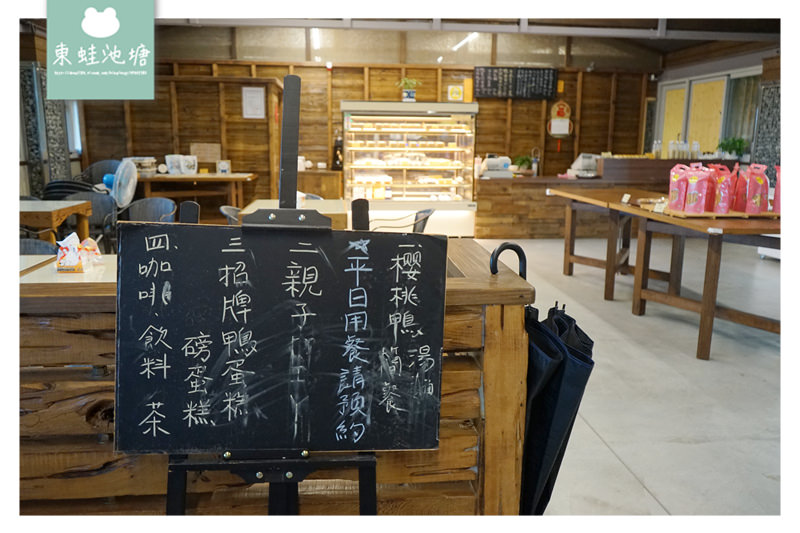 東蛙池塘
一、櫻桃鴨湯
簡餐
☆平日用餐請預約
二、親子DIY
三、招牌鴨蛋糕
磅蛋糕
四、咖啡、飲料、茶